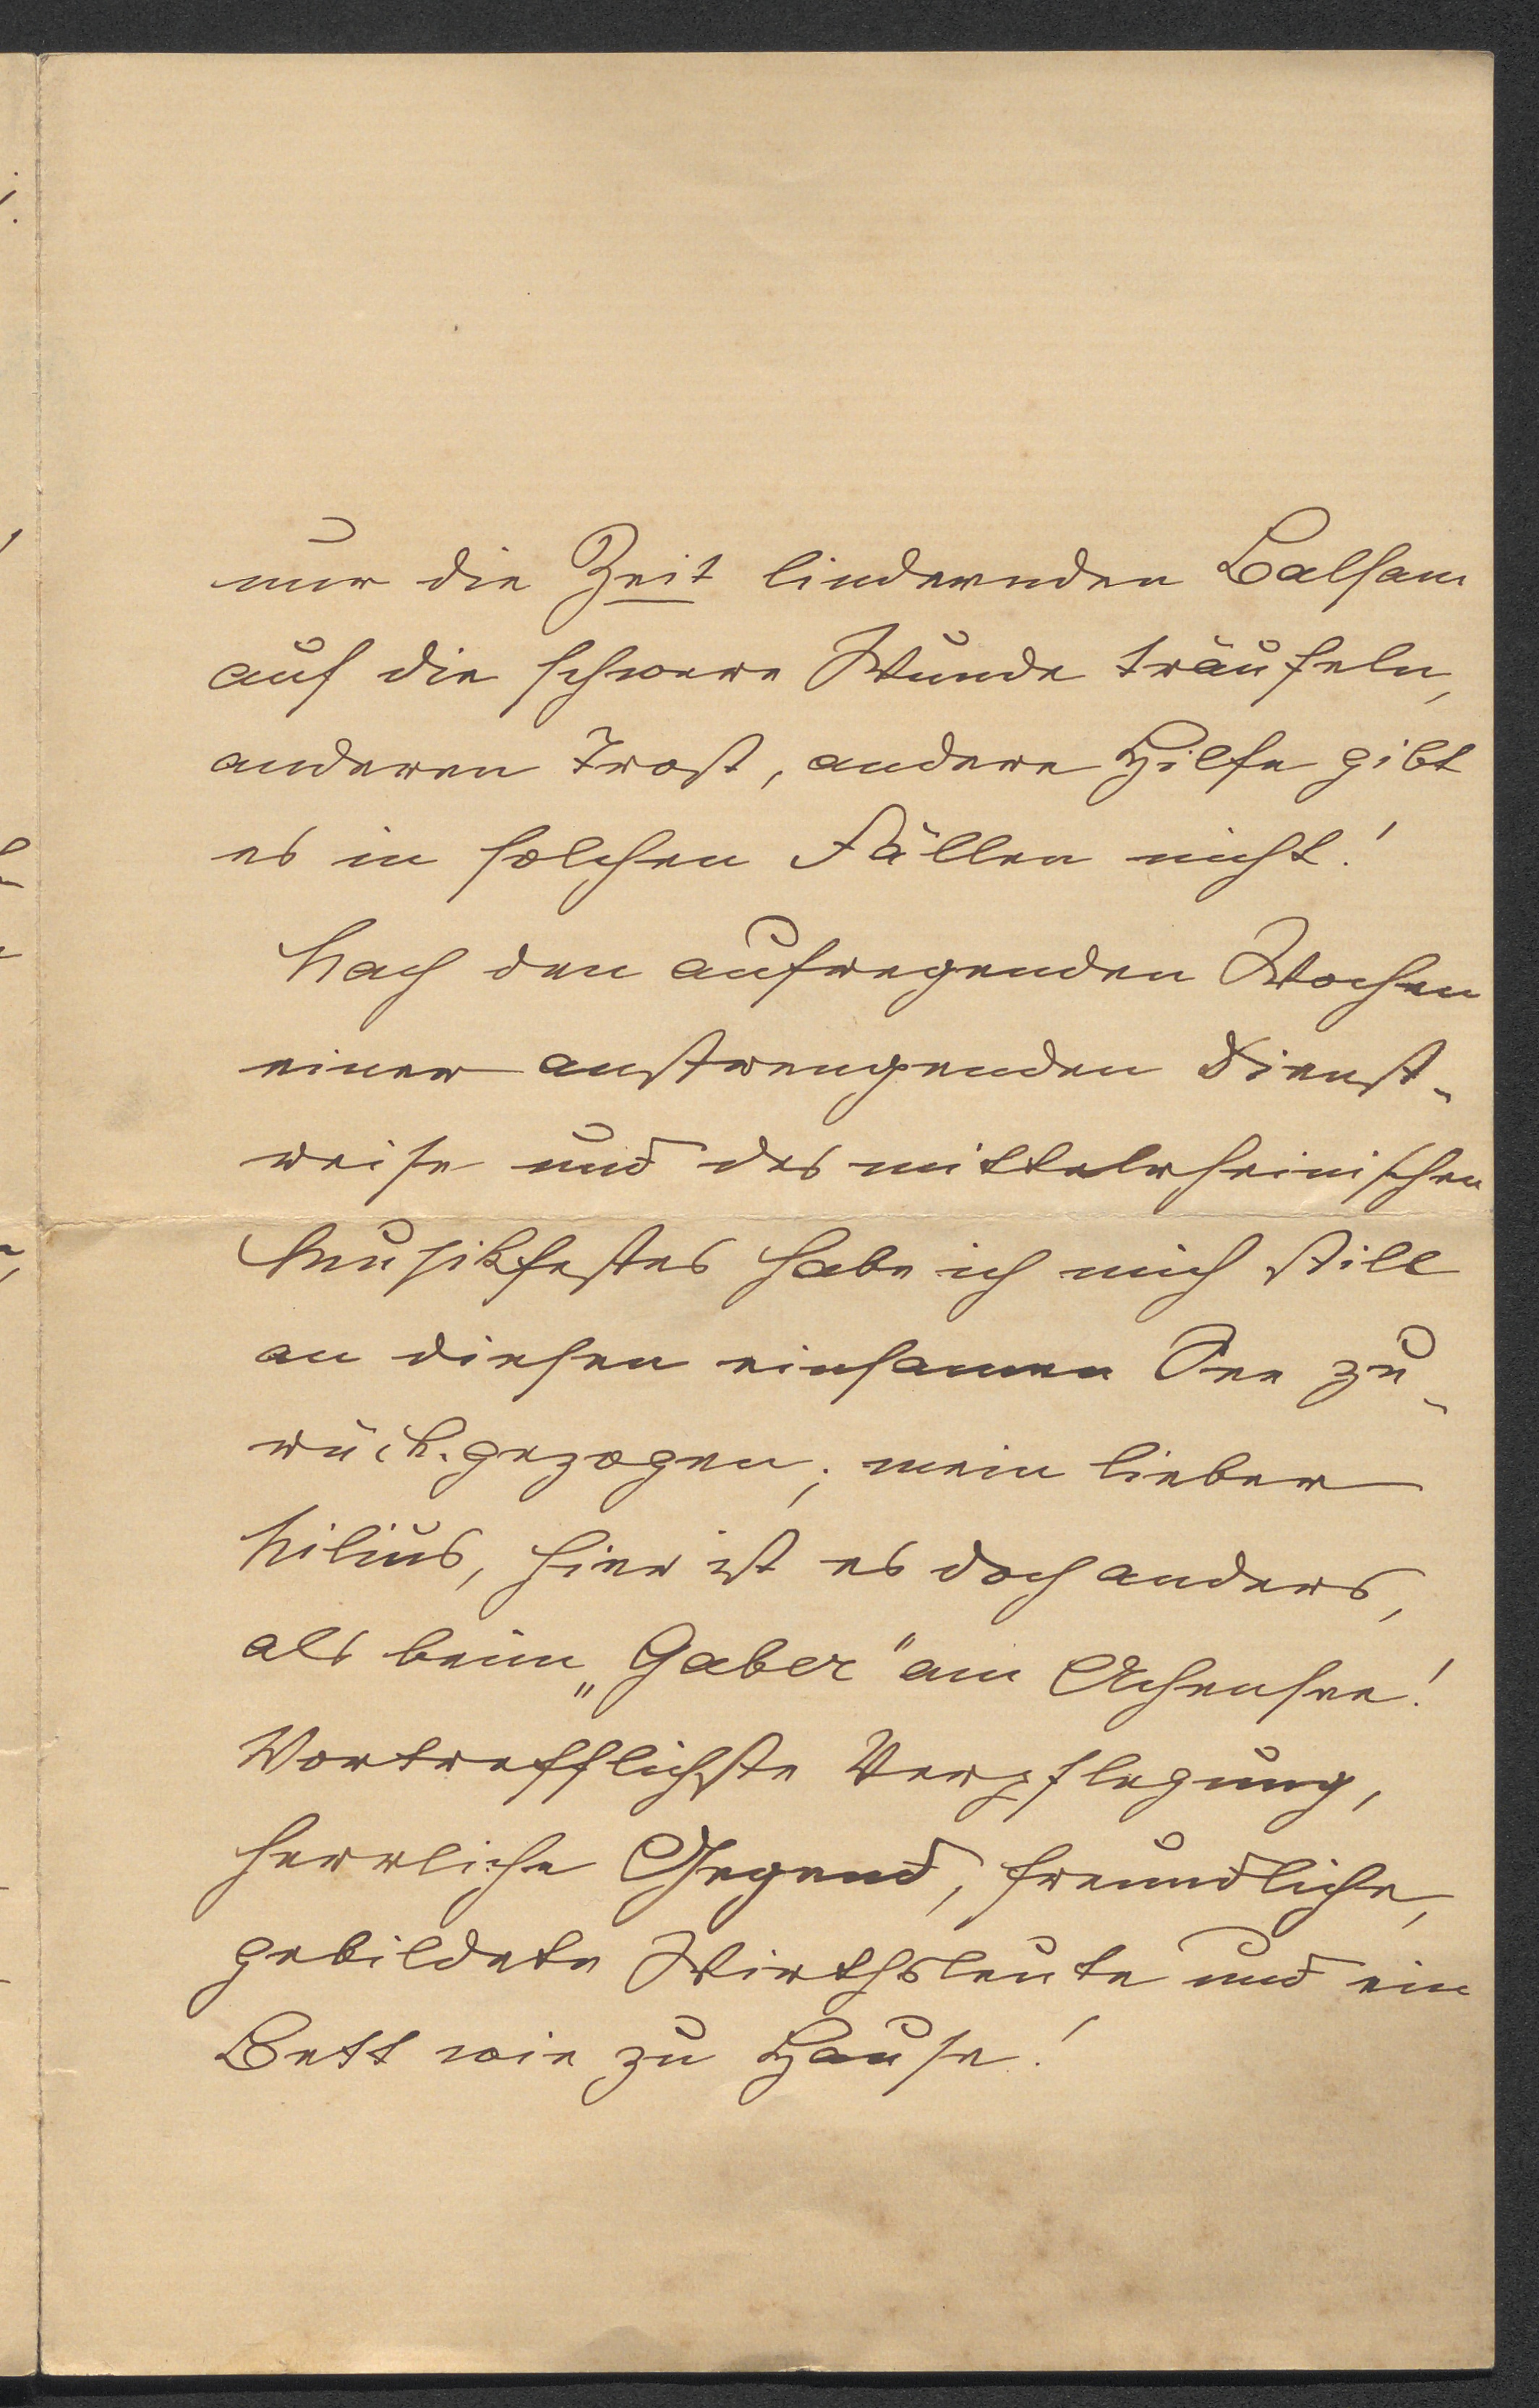 nur die Zeit lindernden Balsam
auf die schwere Wunde träufeln,
anderen Trost, andere Hilfe gibt
es in solchen Fällen nicht!
Nach den aufregenden Wochen
einer anstrengenden Dienst-
reise und des mittelrheinischen
Musikfestes habe ich mich still
an diesen einsamen See zu-
rück-gezogen; mein lieber
Nilius, hier ist es doch anders,
als beim „Gaber" am Achensee!
Vortrefflichste Verpflegung,
herrliche Gegend, freundliche,
gebildete Wirthsleute und ein
Bett wie zu Hause!